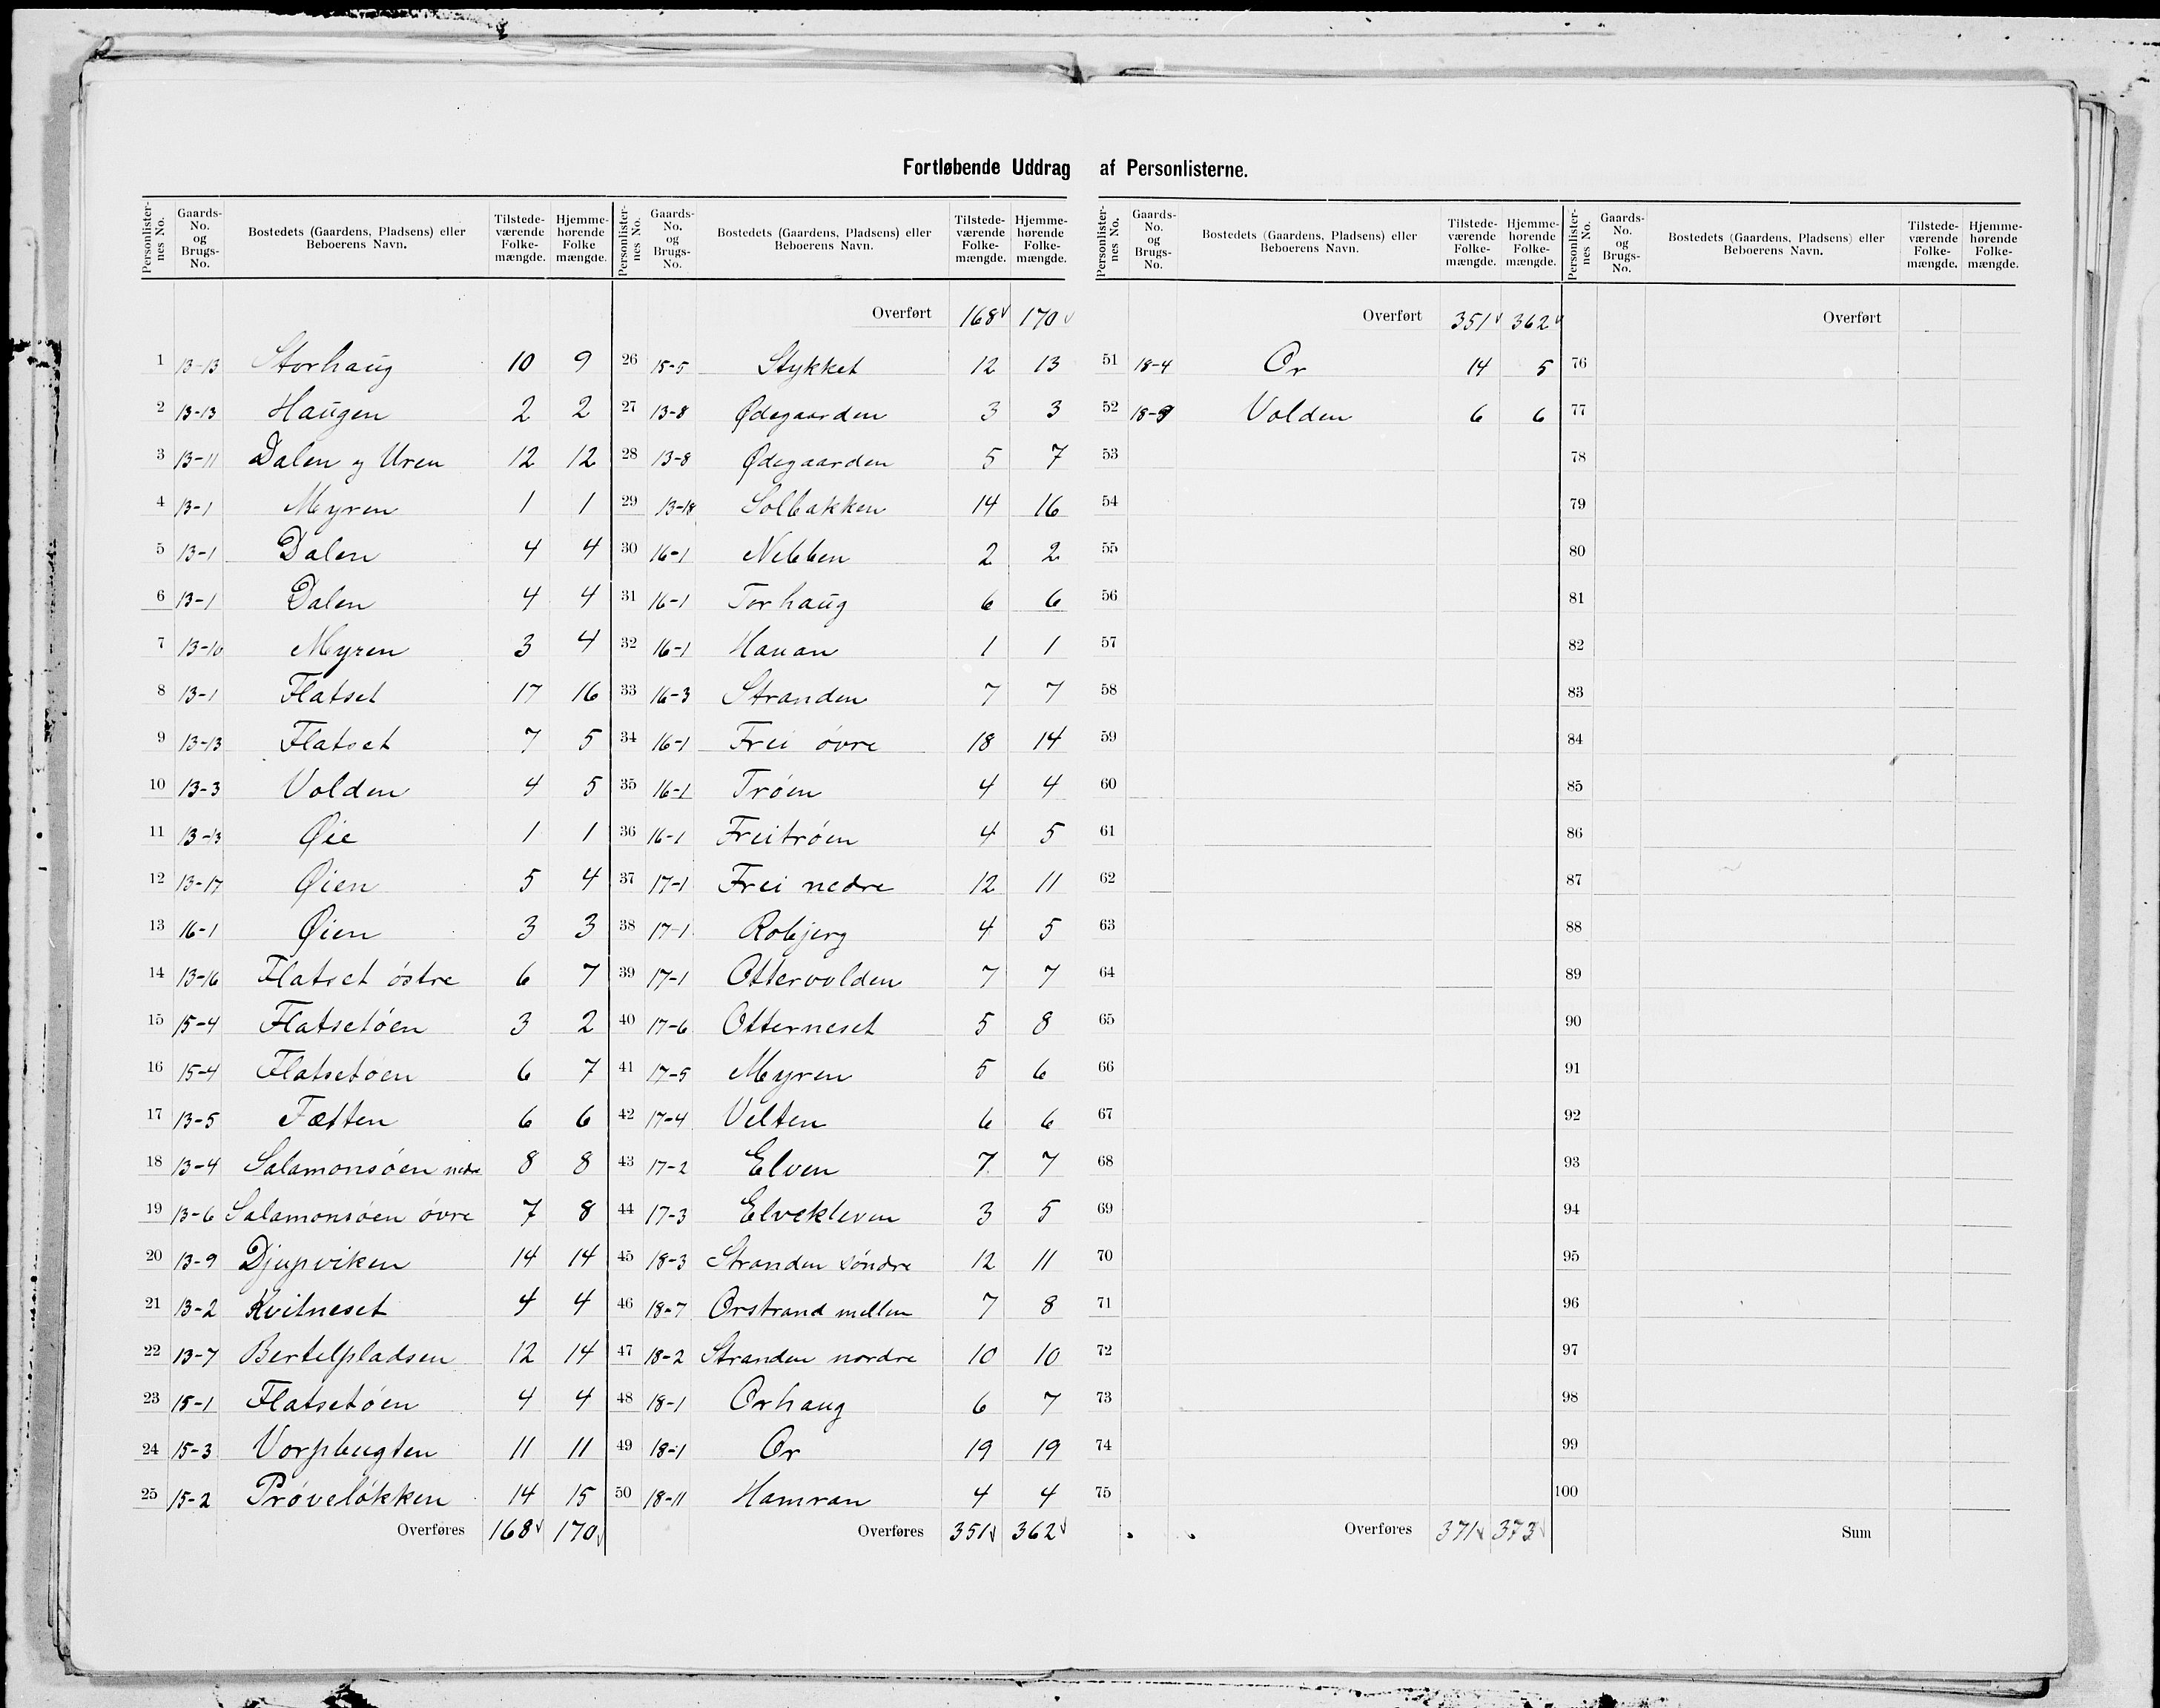 Fortløbende Uddrag af Personlisterne.
Personlister-nes No. | Gaards-No. og Brugs-No. | Bostedets (Gaardens, Pladsens) eller Beboerens Navn. | Tilstede-værende Folke-mængde. | Hjemme-hørende Folke mængde.
1 13-13 Storhaug 10 9
2 13-13 Haugen 2 2
3 13-11 Dalen y Uren 12 12
4 13-1 Myren 1 1
5 13-1 Dalen 4 4
6 13-1 Dalen 4 4
7 13-10 Myren 3 4
8 13-1 Flatset 17 16
9 13-13 Flatset 7 5
10 13-3 Volden 4 5
11 13-13 Øie 1 1
12 13-17 Øien 5 4
13 16-1 Øien 3 3
14 13-16 Flatset östre 6 7
15 15-4 Flatsetöen 3 2
16 15-4 Flatsetöen 6 7
17 13-5 Fætten 6 6
18 13-4 Salamonsöen nedre 8 8
19 13-6 Salamonsöen övre 7 8
20 13-9 Djupviken 14 14
21 13-2 Kvitneset 4 4
22 13-7 Bertelpladsen 12 14
23 15-1 Flatsetöen 4 4
24 15-3 Vorpbugten 11 11
25 15-2 Prövelökken 14 15
Overføres 168 170
Personlister-nes No. | Gaards-No. og Brugs-No. | Bostedets (Gaardens, Pladsens) eller Beboerens Navn. | Tilstede-værende Folke-mængde. | Hjemme-hørende Folke-mængde.
Overført 168 170
26 15-5 Stykket 12 13
27 13-8 Ødegaarden 3 3
28 13-8 Ødegaarden 5 7
29 13-18 Solbakken 14 16
30 16-1 Nebben 2 2
31 16-1 Torhaug 6 6
32 16-1 Hauan 1 1
33 16-3 Stranden 7 7
34 16-1 Frei övre 18 14
35 16-1 Tröen 4 4
36 16-1 Freitröen 4 5
37 17-1 Frei nedre 12 11
38 17-1 Robjerg 4 5
39 17-1 Ottervolden 7 7
40 17-6 Otterneset 5 8
41 17-5 Myren 5 6
42 17-4 Velten 6 6
43 17-2 Elven 7 7
44 17-3 Elvekleven 3 5
45 18-3 Stranden söndre 12 11
46 18-7 Orstrand mellem 7 8
47 18-2 Stranden nordre 10 10
48 18-1 Orhaug 6 7
49 18-1 Or 19 19
50 18-11 Hamran 4 4
Overføres 351 362
Personlister-nes No. | Gaards-No. og Brugs-No. | Bostedets (Gaardens, Pladsens) eller Beboerens Navn. | Tilstede-værende Folke-mængde. | Hjemme-hørende Folke-mængde.
Overført 351 362
51 18-4 Or 14 5
52 18-9 Volden 6 6
53
54
55
56
57
58
59
60
61
62
63
64
65
66
67
68
69
70
71
72
73
74
75
Overføres 371 373
Personlister-nes No. | Gaards-No. og Brugs-No. | Bostedets (Gaardens, Pladsens) eller Beboerens Navn. | Tilstede-værende Folke-mængde. | Hjemme-hørende Folke-mængde.
Overført
76
77
78
79
80
81
82
83
84
85
86
87
88
89
90
91
92
93
94
95
96
97
98
99
100
Sum